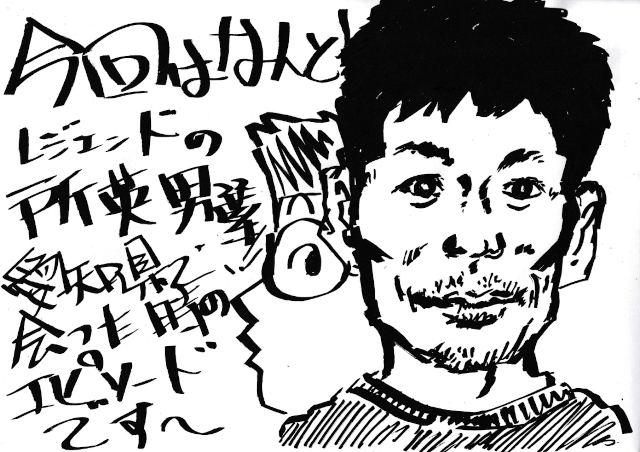 今回はなんと!
レジェンドの
所英男選手
愛知県で
会った時の
エピソード
です〜